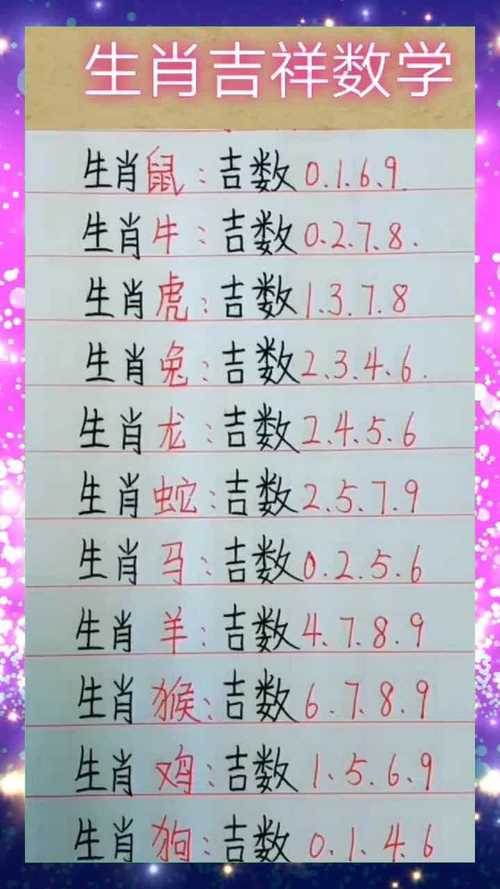 生肖吉祥数学
生肖鼠：吉数0.1.6.9.
生肖牛：吉数0.2.7.8.
生肖虎：吉数1.3.7.8
生肖兔：吉数2.3.4.6.
生肖龙：吉数2.4.5.6
生肖蛇：吉数2.5.7.9
生肖马：吉数0.2.5.6
生肖羊：吉数4.7.8.9
生肖猴：吉数6.7.8.9
生肖鸡：吉数1.5.6.9
生肖狗：吉数0.1.4.6